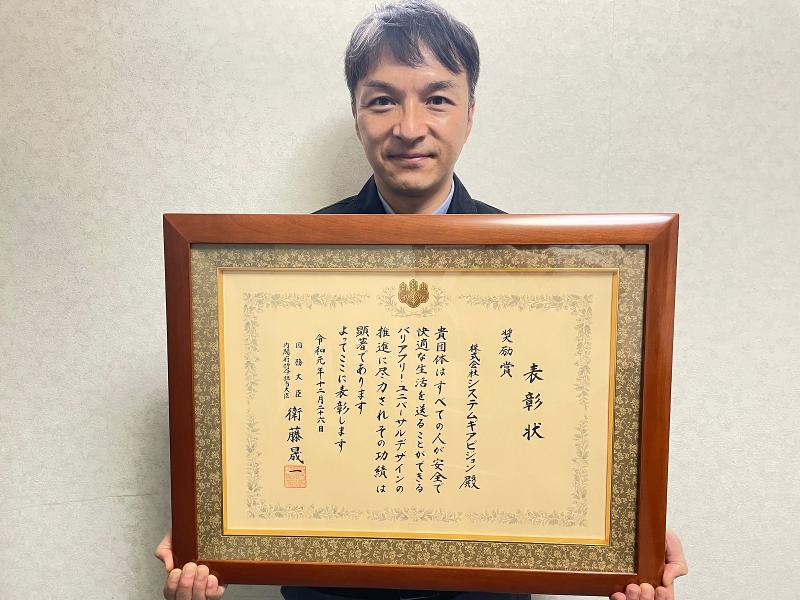 表彰状
奨励賞
株式会社システムギアビジョン殿
貴団体はすべての人が安全で
快適な生活を送ることができる
バリアフリーユニバーサルデザインの
推進に尽力されその功績は
顕著であります
よってここに表彰します
令和元年十二月二十六日
国務大臣
内閣府特命担当大臣
衛藤晟一